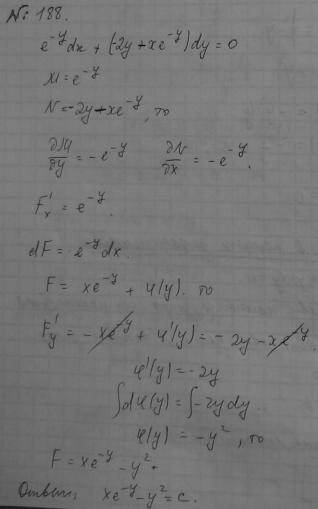 № 188.
e^{-y}dx + (-2y + xe^{-y})dy = 0
M = e^{-y}
N = -2y - xe^{-y}, то
∂M/∂y = -e^{-y}   ∂N/∂x = -e^{-y}.
F'_x = e^{-y}.
dF = e^{-y}dx.
F = xe^{-y} + φ(y). то
F'_y = -xe^{-y} + φ'(y) = -2y - xe^{-y}.
φ'(y) = -2y
∫dφ(y) = ∫-2ydy.
φ(y) = -y², то
F = xe^{-y} - y².
Ответ: xe^{-y} - y² = c.